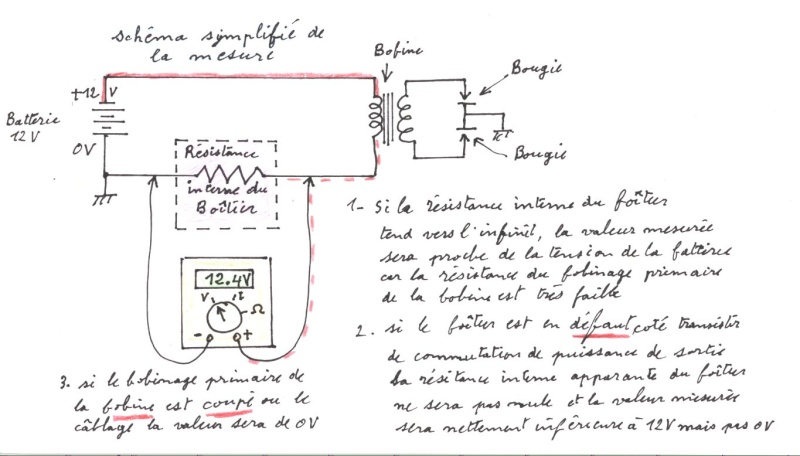 schéma simplifié de
la mesure
Bobine
Bougie
+12 V
Batterie
12V
0V
Résistance
interne du
Boîtier
Bougie
12.4V
V I
Ω
- +
1- Si la résistance interne du boîtier
tend vers l'infinit, la valeur mesurée
sera proche de la tension de la batterie
car la résistance du bobinage primaire
de la bobine est très faible
2. si le boîtier est en défaut coté transistor
de commutation de puissance de sortie
la résitance interne apparante du boîtier
ne sera pas nulle et la valeur mesurée
sera nettement inférieure à 12V mais pas 0V
3. si le bobinage primaire de
la bobine est coupé ou le
câblage la valeur sera de 0V